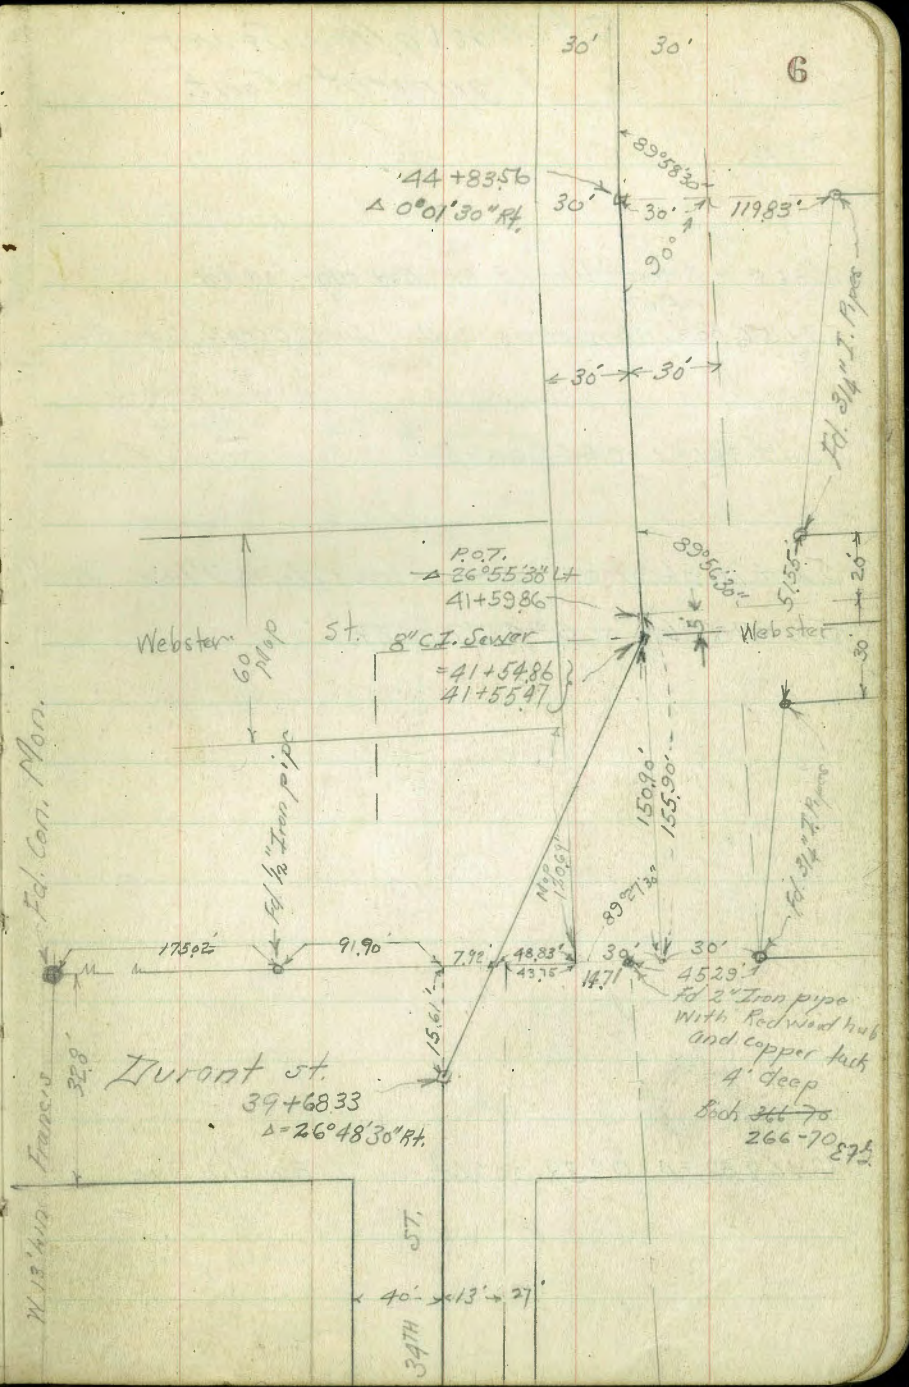 30' 30'
6
89°58'30"
44+83.56
Δ 0°01'30" Rt.
30' 30' 119.83'
90°
Fd. 3/4" I. Pipes
30' 30'
P.O.T.
Δ 26°55'30" Lt
41+59.86
89°56'30"
51.55'
20'
Webster St.
8" C.I. Sewer
5'
Webster
60
Map
=41+54.86
41+55.47
30
Fd. Con. Mon.
Fd 1/2" Iron pipe
150.90'
155.90'
Map
120.69'
89°27'30"
Fd. 3/4" I. Pipes
175.02' 91.90' 7.92' 48.83' 30' 30'
43.75 14.71 45.29'
Fd 2" Iron pipe
With Redwood hub
and copper tack
4' deep
Book 366-70
266-70
15.61'
32.8'
Durant St.
39+68.33
Δ=26°48'30" Rt.
Francis
34TH ST.
40' 13' 27'